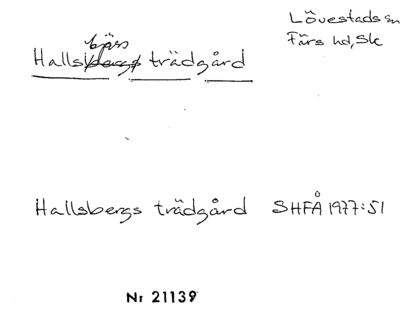 Lövestads sn
Färs hd, Sk
bärs
Halls bergs trädgård
Hallsbergs trädgård SHFÅ 1977:51
Nr 21139